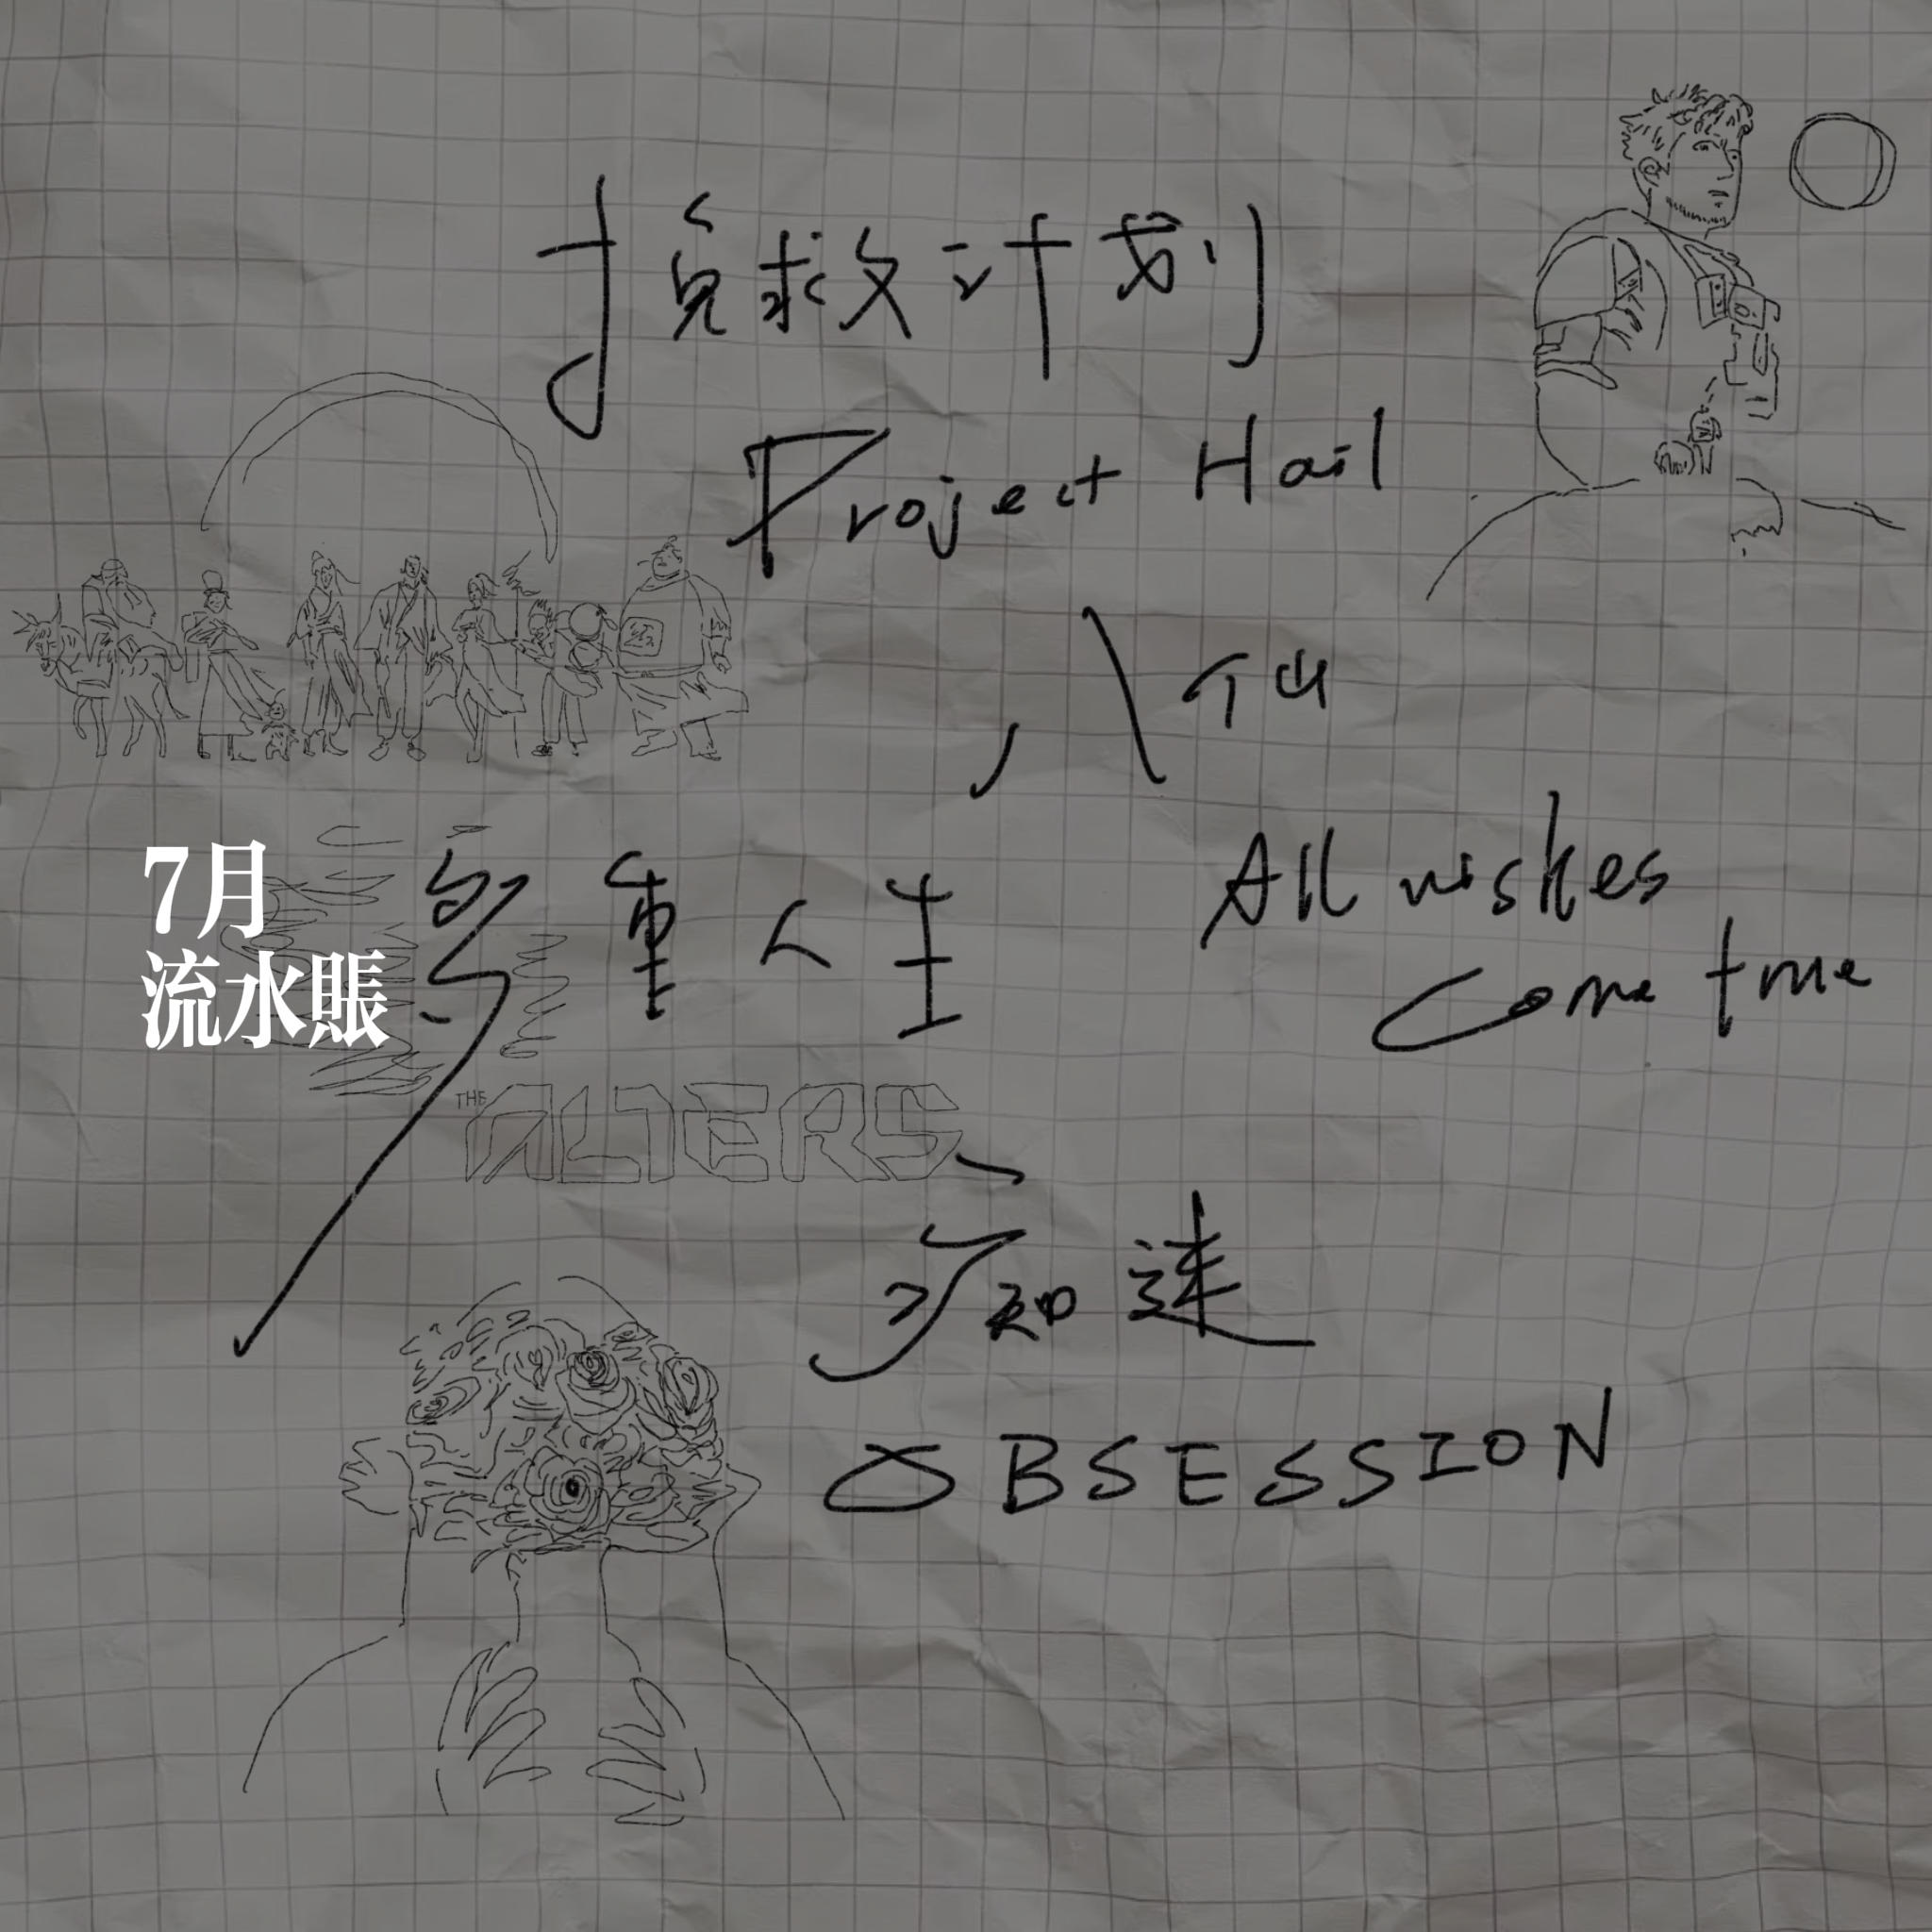 挽救计划
Project Hail
八仙
7月
流水賬
多重人生
All wishes
come true
THE ALTERS
痴迷
OBSESSION